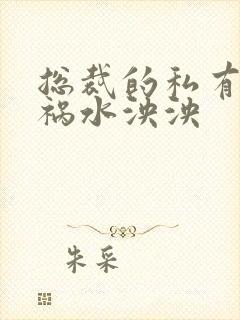 总裁的私有
祸水泱泱
朱采